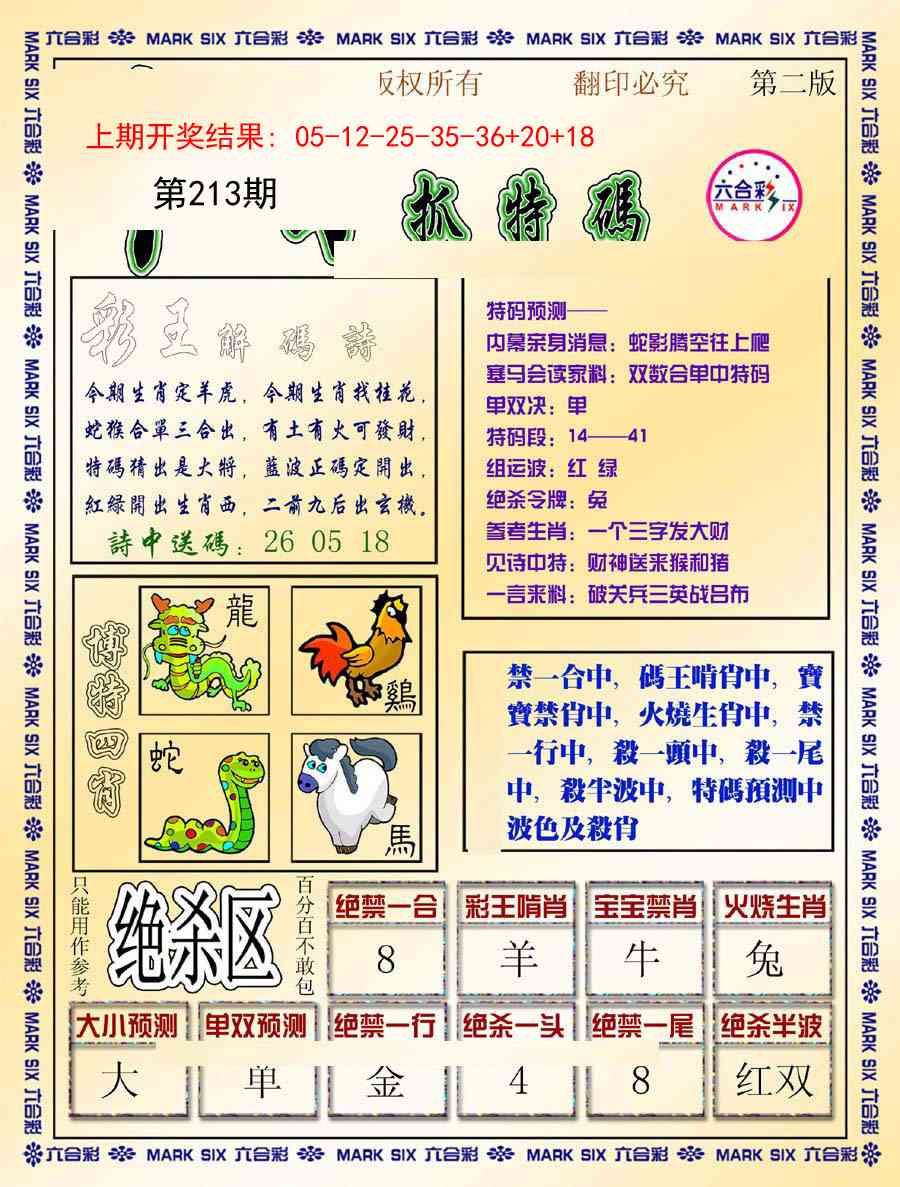 六合彩 MARK SIX 六合彩 MARK SIX 六合彩 MARK SIX 六合彩 MARK SIX 六合彩
版权所有 翻印必究 第二版
上期开奖结果：05-12-25-35-36+20+18
第213期
抓特碼
六合彩
MARK SIX
彩王解碼詩
今期生肖定羊虎，今期生肖找桂花，
蛇猴合單三合出，有土有火可發財，
特碼猜出是大將，藍波正碼定開出，
紅緑開出生肖西，二前九后出玄機。
詩中送碼：26 05 18
特码预测——
内幕亲身消息：蛇影腾空往上爬
塞马会读家料：双数合单中特码
单双决：单
特码段：14——41
组运波：红 绿
绝杀令牌：兔
参考生肖：一个三字发大财
见诗中特：财神送来猴和猪
一言来料：破关兵三英战吕布
博特四肖
龍
鷄
蛇
馬
禁一合中，碼王啃肖中，寶
寶禁肖中，火燒生肖中，禁
一行中，殺一頭中，殺一尾
中，殺半波中，特碼預測中
波色及殺肖
只能用作参考
绝杀区
百分百不敢包
绝禁一合 彩王啃肖 宝宝禁肖 火烧生肖
8 羊 牛 兔
大小预测 单双预测 绝禁一行 绝杀一头 绝禁一尾 绝杀半波
大 单 金 4 8 红双
六合彩 MARK SIX 六合彩 MARK SIX 六合彩 MARK SIX 六合彩 MARK SIX 六合彩